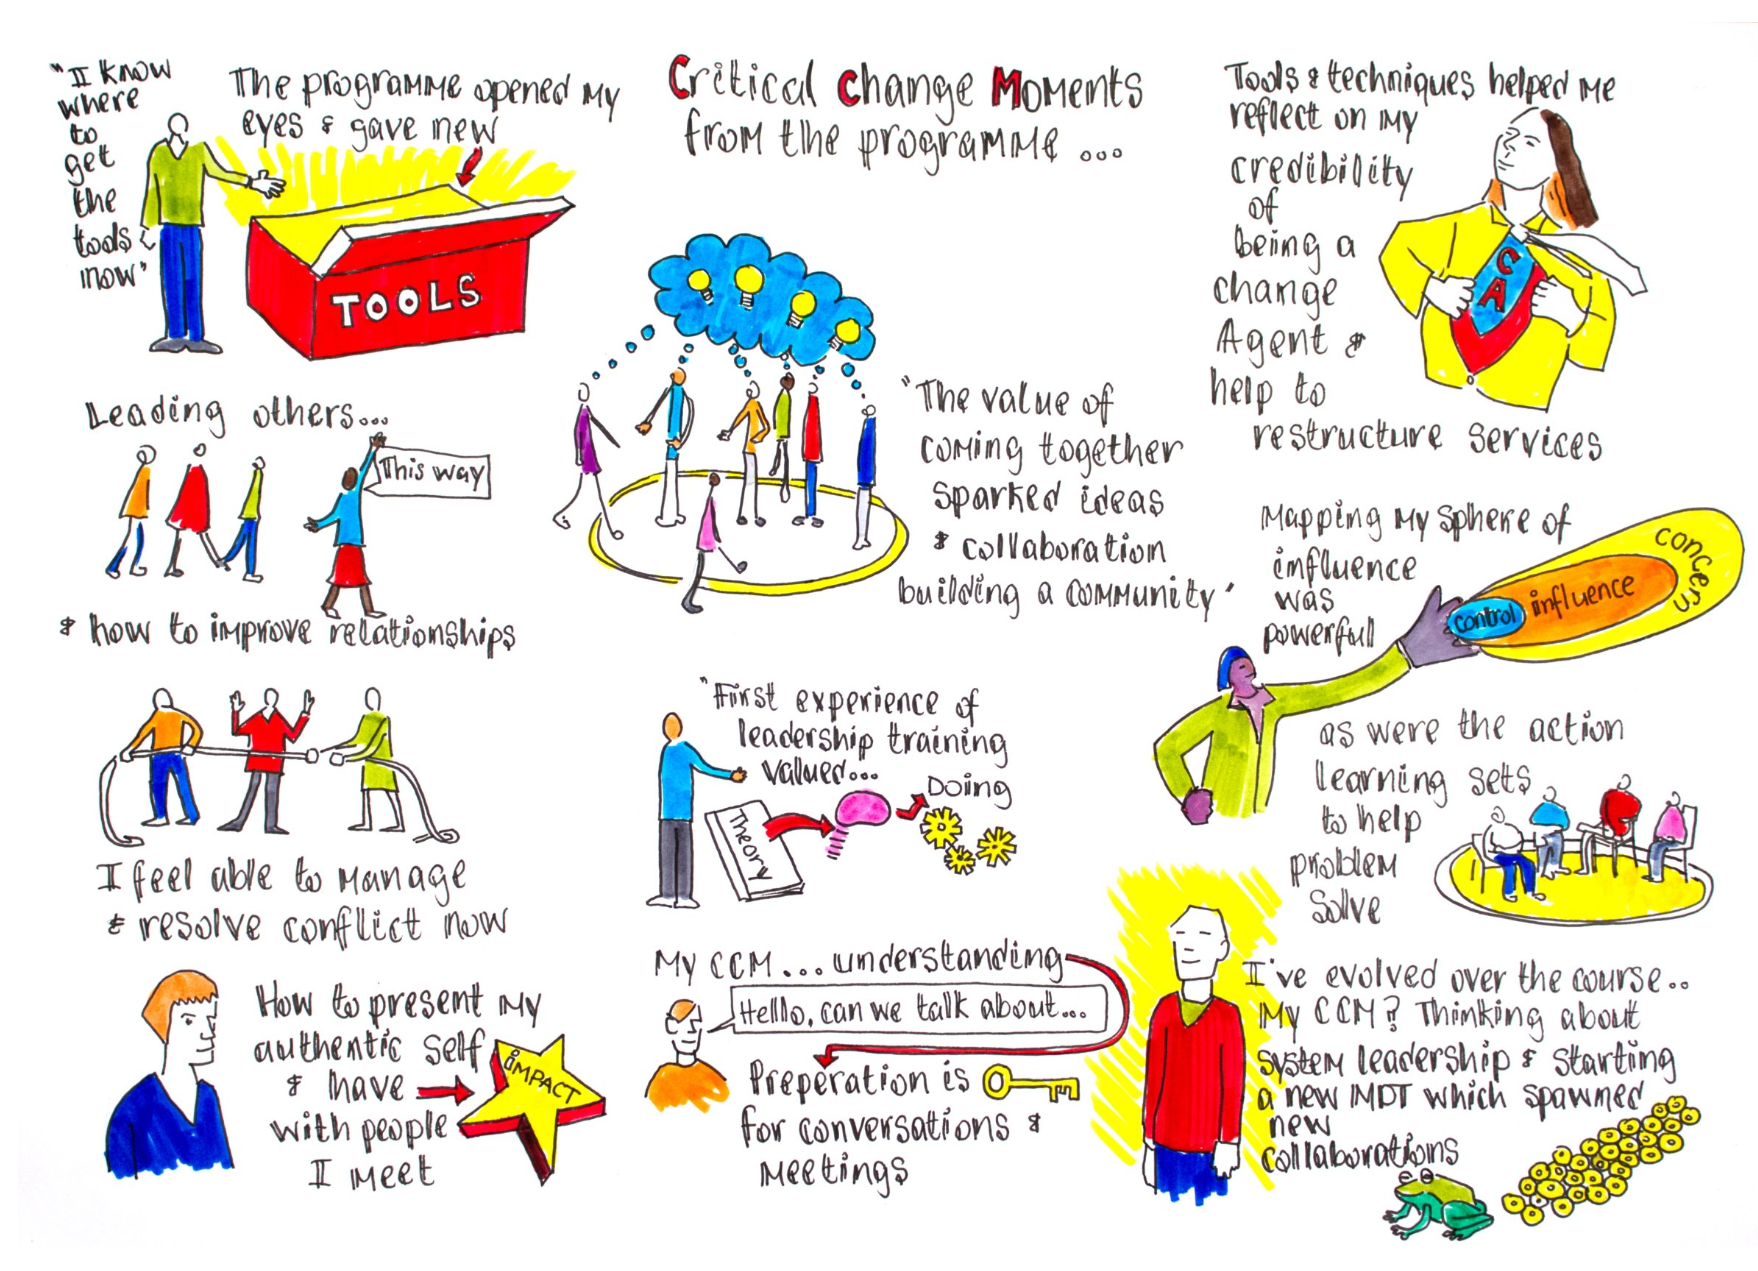 Critical Change Moments
from the programme ...
"I know
where
to
get
the
tools
now"
The programme opened my
eyes & gave new
TOOLS
Leading others...
This way
& how to improve relationships
I feel able to manage
& resolve conflict now
How to present my
authentic self
& have
with people
I meet
IMPACT
"The value of
coming together
sparked ideas
& collaboration
building a community"
"First experience of
leadership training
valued...
Doing
Theory
My CCM... understanding
Helllo, can we talk about...
Preperation is
for conversations &
meetings
Tools & techniques helped me
reflect on my
credibility
of
being a
change
Agent &
help to
restructure services
CA
Mapping my sphere of
influence
was
powerfull
concern
influence
control
as were the action
learning sets
to help
problem
solve
I've evolved over the course..
My CCM? Thinking about
system leadership & starting
a new MDT which spawned
new
collaborations